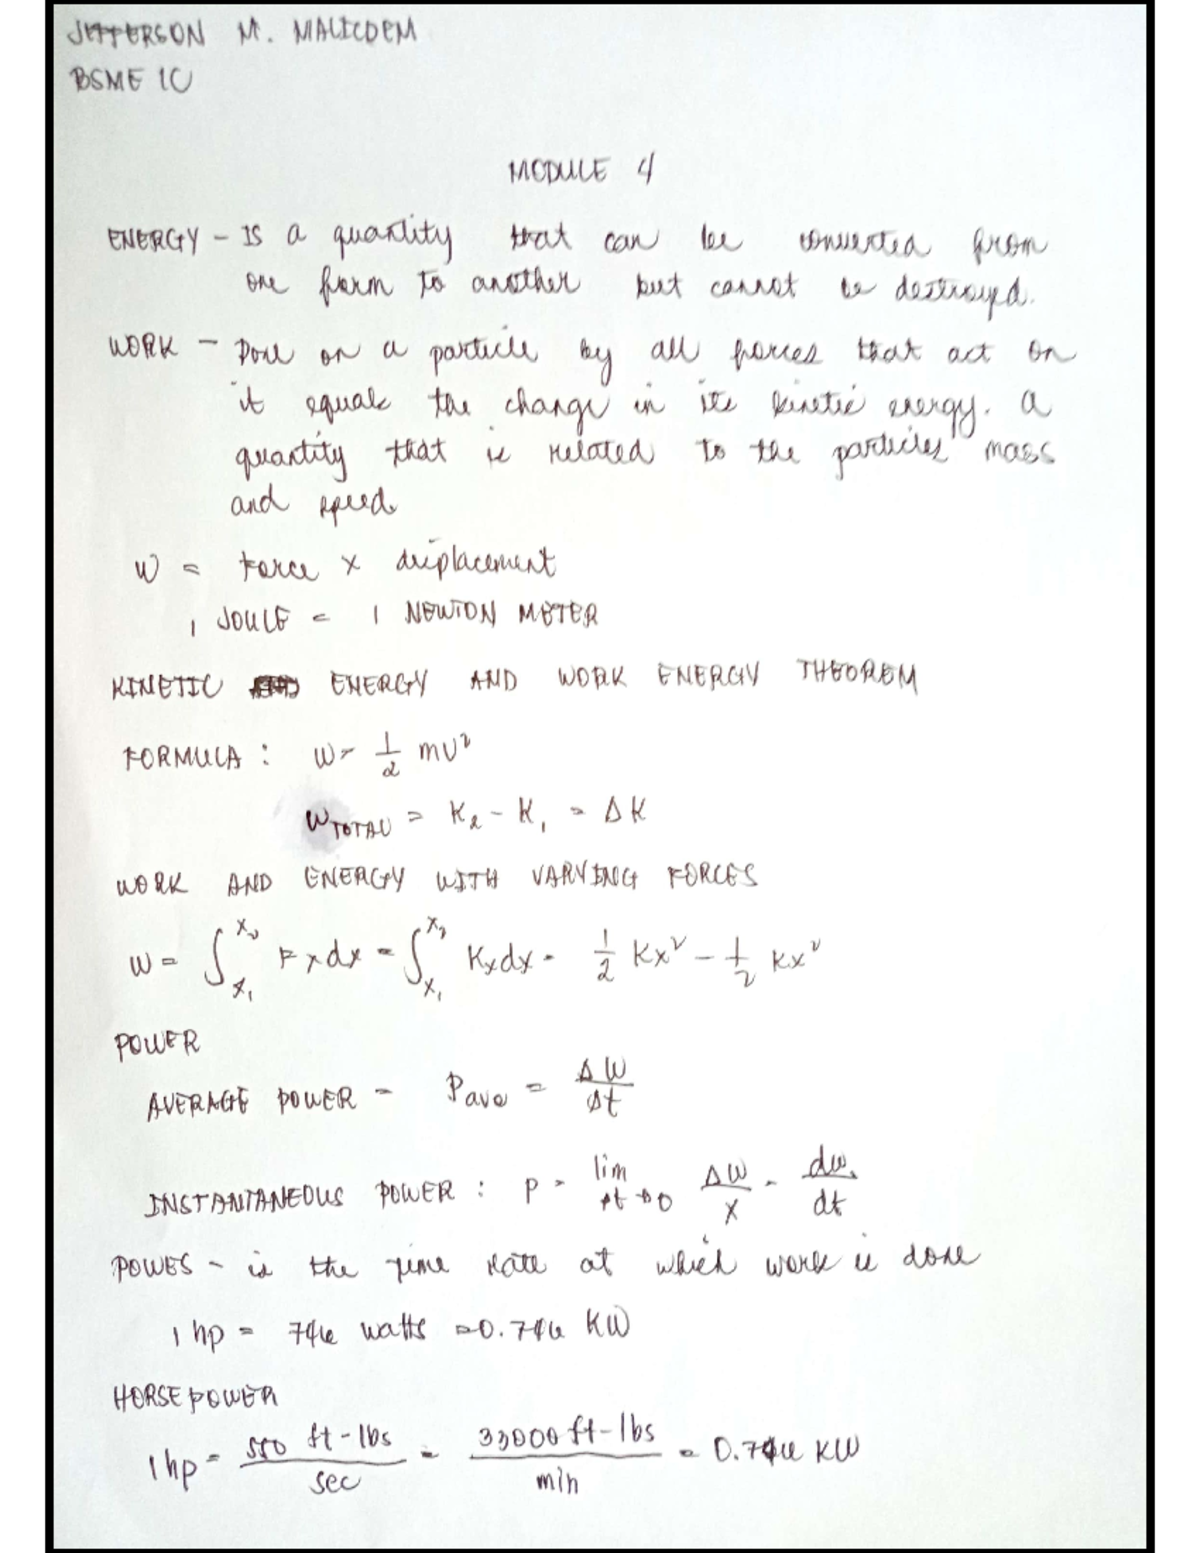 JEFFERSON M. MALICDEM
BSME 1C
MODULE 4
ENERGY – IS a quantity that can be converted from
one form to another but cannot be destroyed.
WORK – Done on a particle by all forces that act on
it equals the change in its kinetic energy. a
quantity that is related to the particles mass
and speed.
W = Force x displacement
1 JOULE = 1 NEWTON METER
KINETIC ENERGY AND WORK ENERGY THEOREM
FORMULA : W = 1/2 mv²
W TOTAL = K₂ - K₁ = ΔK
WORK AND ENERGY WITH VARYING FORCES
W = ∫x₁^x₂ Fxdx = ∫x₁^x₂ Kxdx = 1/2 Kx² - 1/2 Kx²
POWER
AVERAGE POWER = Pave = ΔW/Δt
INSTANTANEOUS POWER : P = lim Δt→0 ΔW/X = dw/dt
POWES – is the time rate at which work is done
1 hp = 746 watts = 0.746 KW
HORSEPOWER
1 hp = 550 ft-lbs/sec = 33000 ft-lbs/min = 0.746 KW